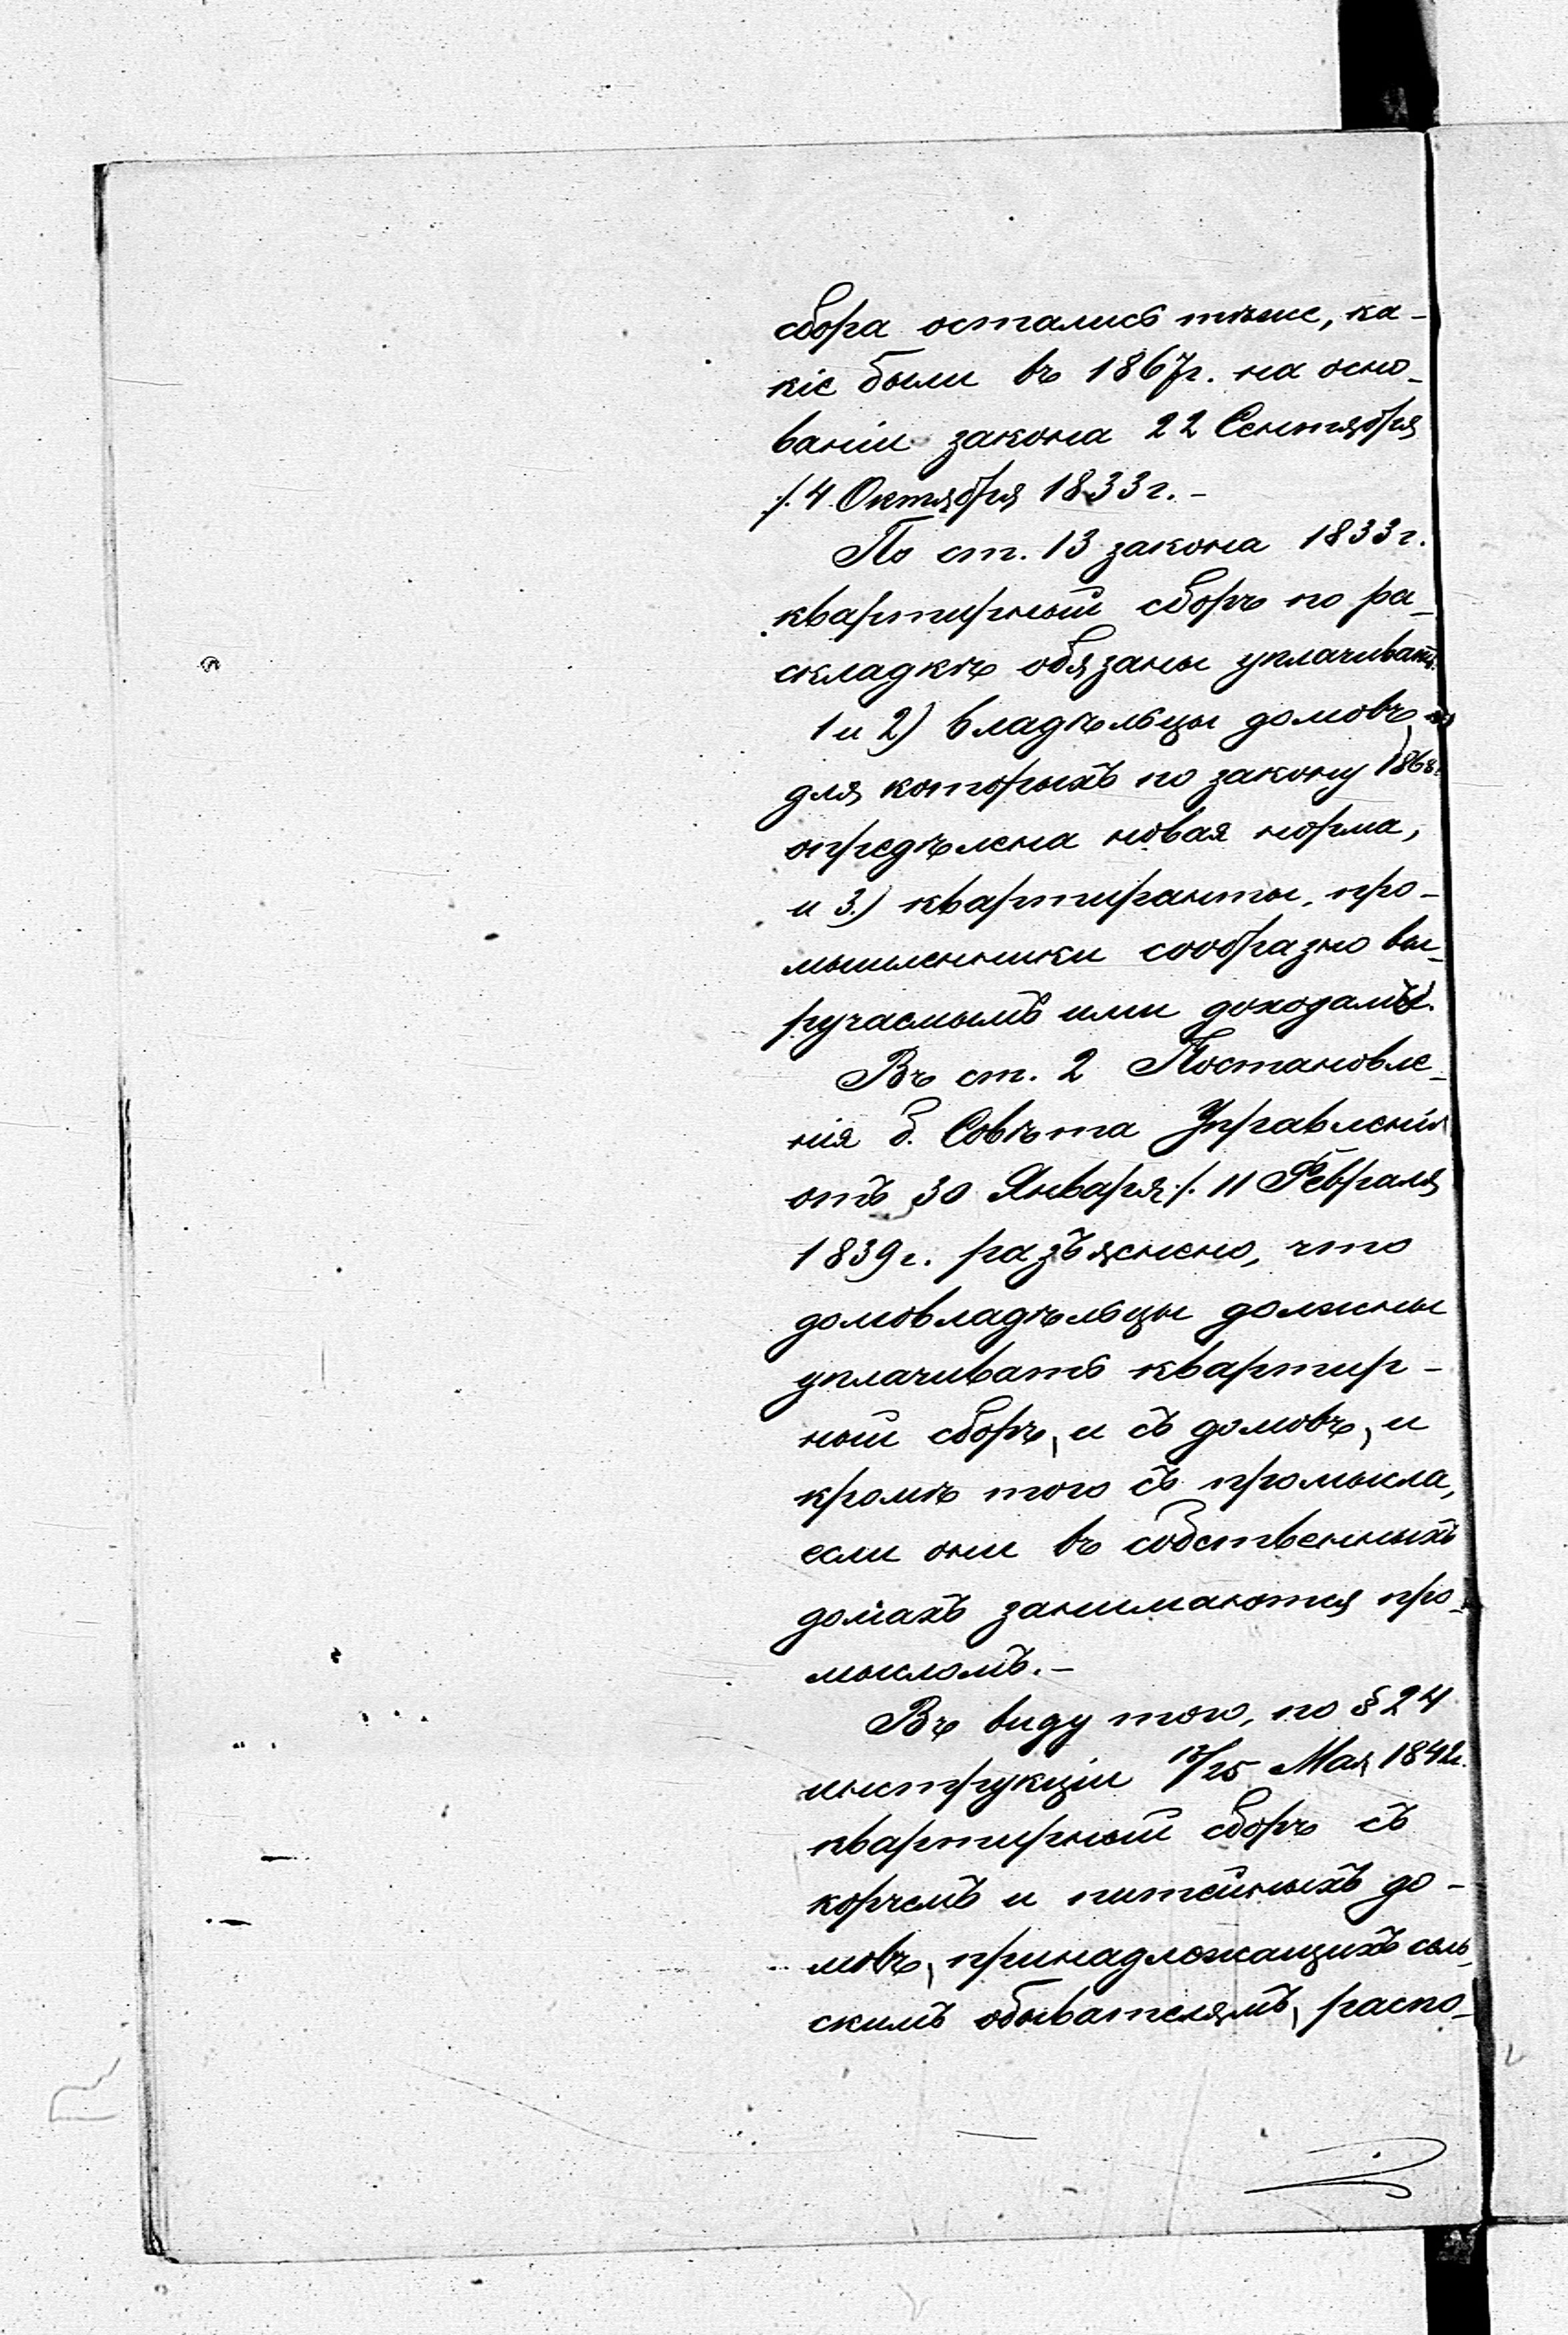 сбора остались тѣже, ка-
кіе были въ 1867г. на осно-
ваніи закона 22 Сентября
/. 4 Октября 1833г. -
По ст. 13 закона 1833г.
квартирный сборъ по ра-
складкѣ обязаны уплачивать:
1 и 2) владѣльцы домовъ,
для которыхъ по закону 1868г.
опредѣлена новая норма,
и 3.) квартиранты, про-
мышленники сообразно вы-
ручаемымъ ими доходамъ.
Въ ст. 2 Постановле-
нія б. Совѣта Управленія
отъ 30 Января ./. 11 Февраля
1839г. разъяснено, что
домовладѣльцы должны
уплачивать квартир-
ный сборъ, и съ домовъ, и
кромѣ того съ промысла,
если они въ собственныхъ
домахъ занимаются про-
мысломъ. -
Въ виду того, по § 24
инструкціи 13/25 Мая 1842г.
квартирный сборъ съ
корчемъ и питейныхъ до-
мовъ, принадлежащихъ сель-
скимъ обывателямъ, распо-